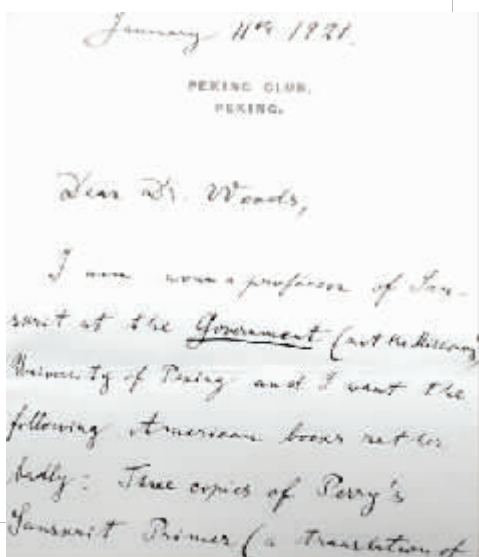 January 11th 1921.
PEKING CLUB.
PEKING.
Dear Dr. Woods,
I am now a professor of San-
scrit at the Government (not the Missionary)
University of Peking and I want the
following American books rather
badly: Three copies of Perry's
Sanscrit Primer (a translation of